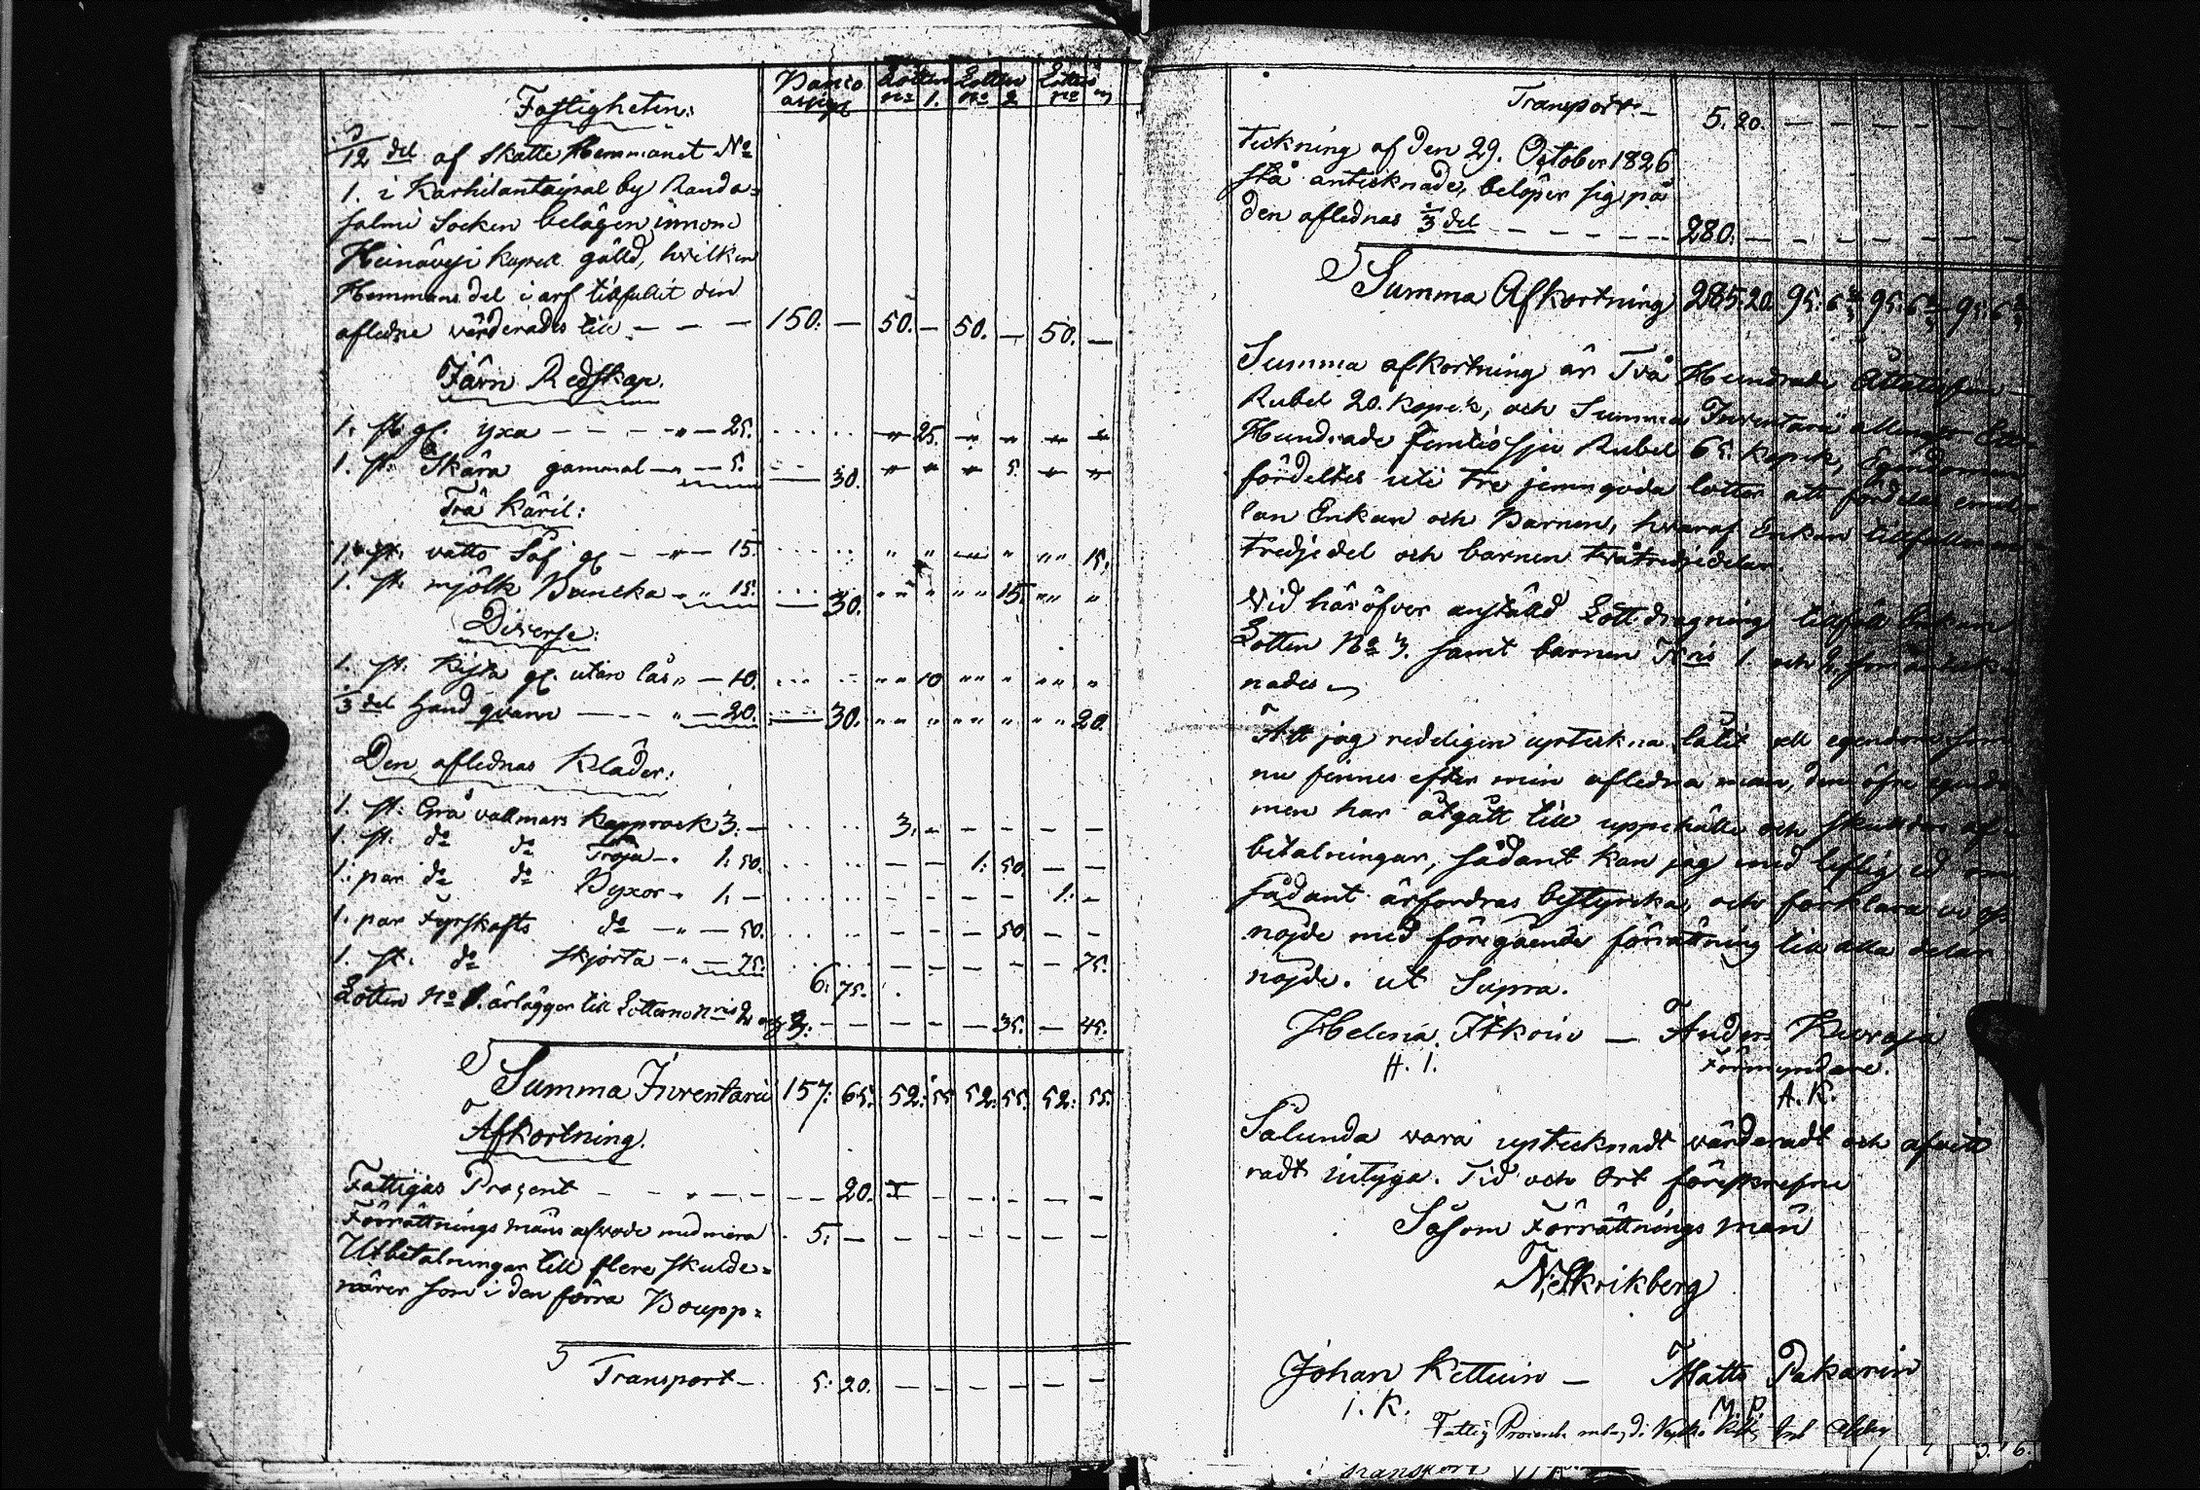 Fastigheten:
Banco assign
Lotten No 1.
Lotten No 2
Lotten No 3
/12 del af Skatte Hemmanet No
1. i Karhilantaipal by Randa=
salmi Socken belägen innom
Heinävesi kapell gäld, hvilken
Hemmans del i arf tillfallit den
afledne värderades till — — — 150: — 50. — 50. — 50. —
Järn Redskap.
1. st. gl. yxa — — — " — 25. " 25. " " " "
1. st. Skära gammal — " — 5. — 30. " " " 5. " "
Trä Käril:
1. st. vatts Så gl — " — 15. " " " " " 15.
1. st. mjölk Buncka " " 15. — 30. " " " 15. " "
Diverse:
1. st. Kista gl. utan lås " — 10. " 10 " " " "
1/3 del Hand qvarn — — " — 20. — 30. " " " " " 20.
Den aflednas Kläder:
1. st. Grå vallmars Kapprock 3. — 3. — — — — —
1. st. do do Tröja — 1. 50. — — 1. 50. — —
1. par do do Byxor — 1. — — — — — 1. —
1. par Fyrskafts do — " — 50. — — — 50. — —
1. st. do Skjorta — " — 75. 6. 75. — — — — — 75.
Lotten No 1. ärlägger till Lotterne Nris 2 och 3: — — — — 35. — 45.
Summa Inventarii 157: 65. 52: 55 52: 55. 52: 55.
Afkortning.
Fattigas Procent — — " — — — 20. — — — — —
Förrättnings mäns arfvode med mera 5. — — — — — — —
Utbetalningar till flere skulde=
närer som i den förra Boupp=
Transport — 5: 20. — — — — — —
Transport. — 5. 20. — — — — — —
teckning af den 29. October 1826
stå antecknade, belöper sig på
den aflednas 1/3 del — — — — — 280. — — — — — — —
Summa Afkortning 285. 20. 95. 6 2/3 95. 6 2/3 95. 6 2/3
Summa afkortning är Två Hundrade Åttatifem
Rubel 20. Kopek, och Summa Inventarii allenast Ett
Hundrade femtiosju Rubel 65. Kopek, Egendomen
fördeltes uti tre jemngoda lotter att fördelas emel=
lan Enkan och Barnen, hvaraf Enkan tillfaller en
tredjedel och barnen tvåtredjedelar.
Vid häröfver anställd Lottdragning tillföll Enkan
Lotten No 3. samt barnen Nris 1 och 2, som anteck=
nades
Att jag redeligen uptekna låtit all egendom som
nu finnes efter min afledna man, den öfre egendo
men har åtgått till uppehälle och skulders af=
betalningar, sådant kan jag med liflig ed om
sådant ärfordras bestyrka, och förklara vi oss
nöjde med föregående förrättning till alla delar
nöjde. ut Supra.
Helena Itkoin — Anders Kuvaja
H. I. Förmyndare.
A. K.
Sålunda vara uptecknadt värderadt och afvitt
radt intyga. Tid och Ort förskrefne
Såsom Förrättnings män
N. Skrikberg
Johan Kettuin — Matts Pakarin
I. K. M. P.
Fattig Procent
Transport